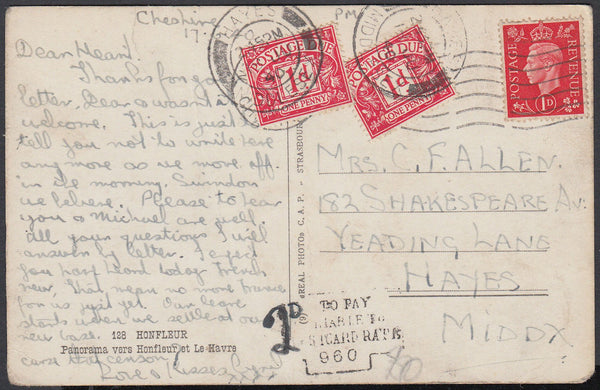 Cheshire
17.
PM
Dear Heart.
Thanks for
letter, Dear & wasn't
welcome. This is just
tell you not to write here
any more as we move off
in the morning, Swindon
we believe. Please to hear
you & Michael are well.
All your questions I will
answer by letter. I expect
you have heard today French
news, that means no more France
for us just yet. Our leave
starts when we settle at our
new base.
128 HONFLEUR
Panorama vers Honfleur et Le Havre
censor
Love & Kisses
«REAL PHOTO» C. A. P. - STRASBOURG
HAYES
POSTAGE DUE
1D
ONE PENNY
POSTAGE DUE
1D
ONE PENNY
POSTAGE
REVENUE
1D
MRS. C. F. ALLEN.
182 SHAKESPEARE AV.
YEADING LANE
HAYES
MIDDX
2D
TO PAY
LIABLE TO
POSTCARD RATE
960